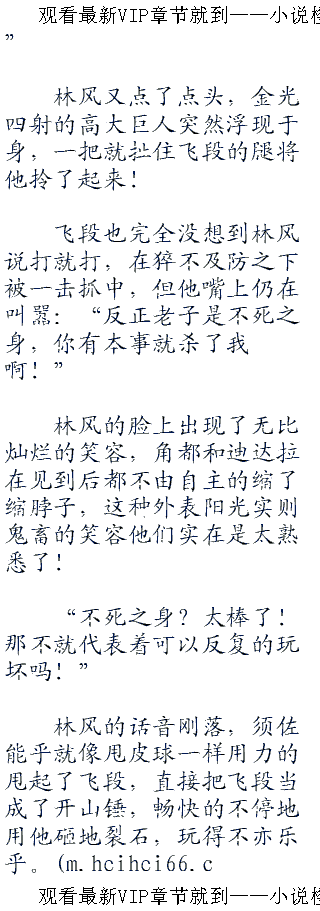 观看最新VIP章节就到——小说楼
”
林风又点了点头，金光
四射的高大巨人突然浮现于
身，一把就扯住飞段的腿将
他拎了起来！
飞段也完全没想到林风
说打就打，在猝不及防之下
被一击抓中，但他嘴上仍在
叫嚣：“反正老子是不死之
身，你有本事就杀了我
啊！”
林风的脸上出现了无比
灿烂的笑容，角都和迪达拉
在见到后都不由自主的缩了
缩脖子，这种外表阳光实则
鬼畜的笑容他们实在是太熟
悉了！
“不死之身？太棒了！
那不就代表着可以反复的玩
坏吗！”
林风的话音刚落，须佐
能乎就像甩皮球一样用力的
甩起了飞段，直接把飞段当
成了开山锤，畅快的不停地
用他砸地裂石，玩得不亦乐
乎。(m.hcihci66.c
观看最新VIP章节就到——小说